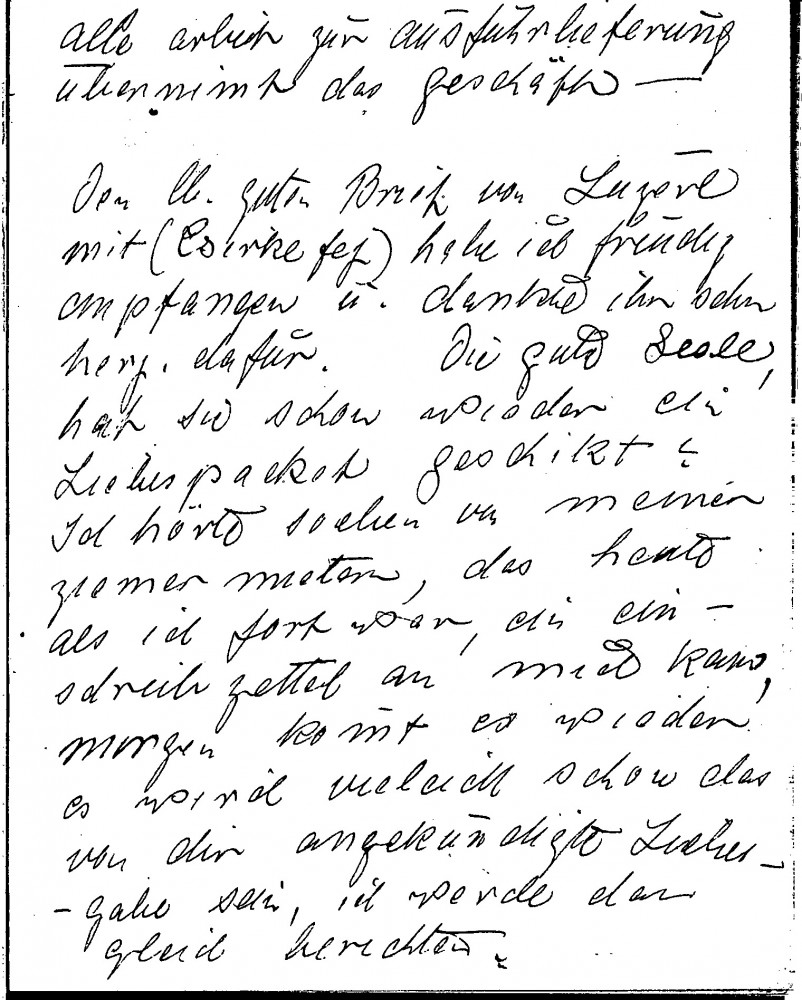 alle arbeit zur ausführlieferung
übernimt das geschäft —
Den lb. guten Brief von
mit ( ) habe ich freudig
empfangen u. dankte ihr sehr
herz. dafür. Die gute Seele,
hat sie schon wieder ein
Liebespacket geschikt?
Ich hörte soeben von meinen
ziemermietern, das heute
als ich fort war, ein ein-
schreib zettel an mich kam,
morgen komt es wieder
es wird vieleicht schon das
von dir angekündigte Liebes-
-gabe sein, ich werde dan
gleich berichten.